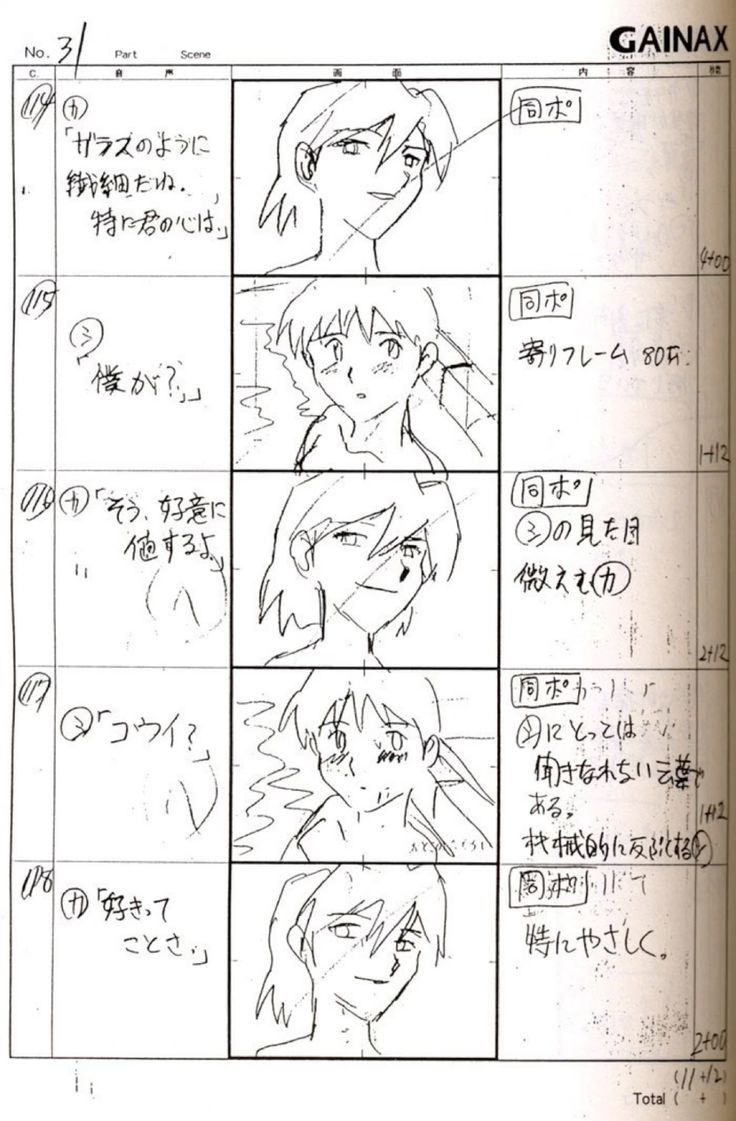 GAINAX
No. 31 Part Scene
C. 音声 画面 内容 秒数
114
カ
「ガラスのように
繊細だね。
特に君の心は。」
同ポ
4+00
115
シ
「僕が?」
同ポ
寄りフレーム 80
1+12
116
カ「そう、好意に
値するよ。」
同ポ
シの見た目
微笑むカ
2+12
117
シ「コウイ?」
同ポ
シにとっては
聞きなれない言葉で
ある。
機械的に反応するシ
1+12
118
カ「好きって
ことさ。」
同ポ
特にやさしく。
2+00
(11+12)
Total ( + )